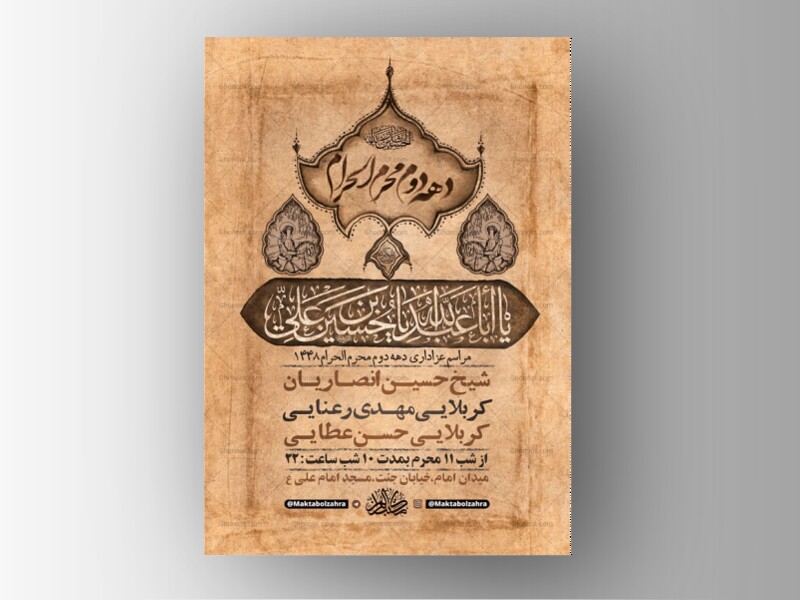 دهه دوم محرم الحرام
یا أبا عبدالله یا حسین بن علی
مراسم عزاداری دهه دوم محرم الحرام ۱۴۴۸
شیخ حسین انصاریان
کربلایی مهدی رعنایی
کربلایی حسن عطایی
از شب ۱۱ محرم بمدت ۱۰ شب ساعت: ۲۲
میدان امام، خیابان جنت، مسجد امام علی ع
@Maktabolzahra @Maktabolzahra